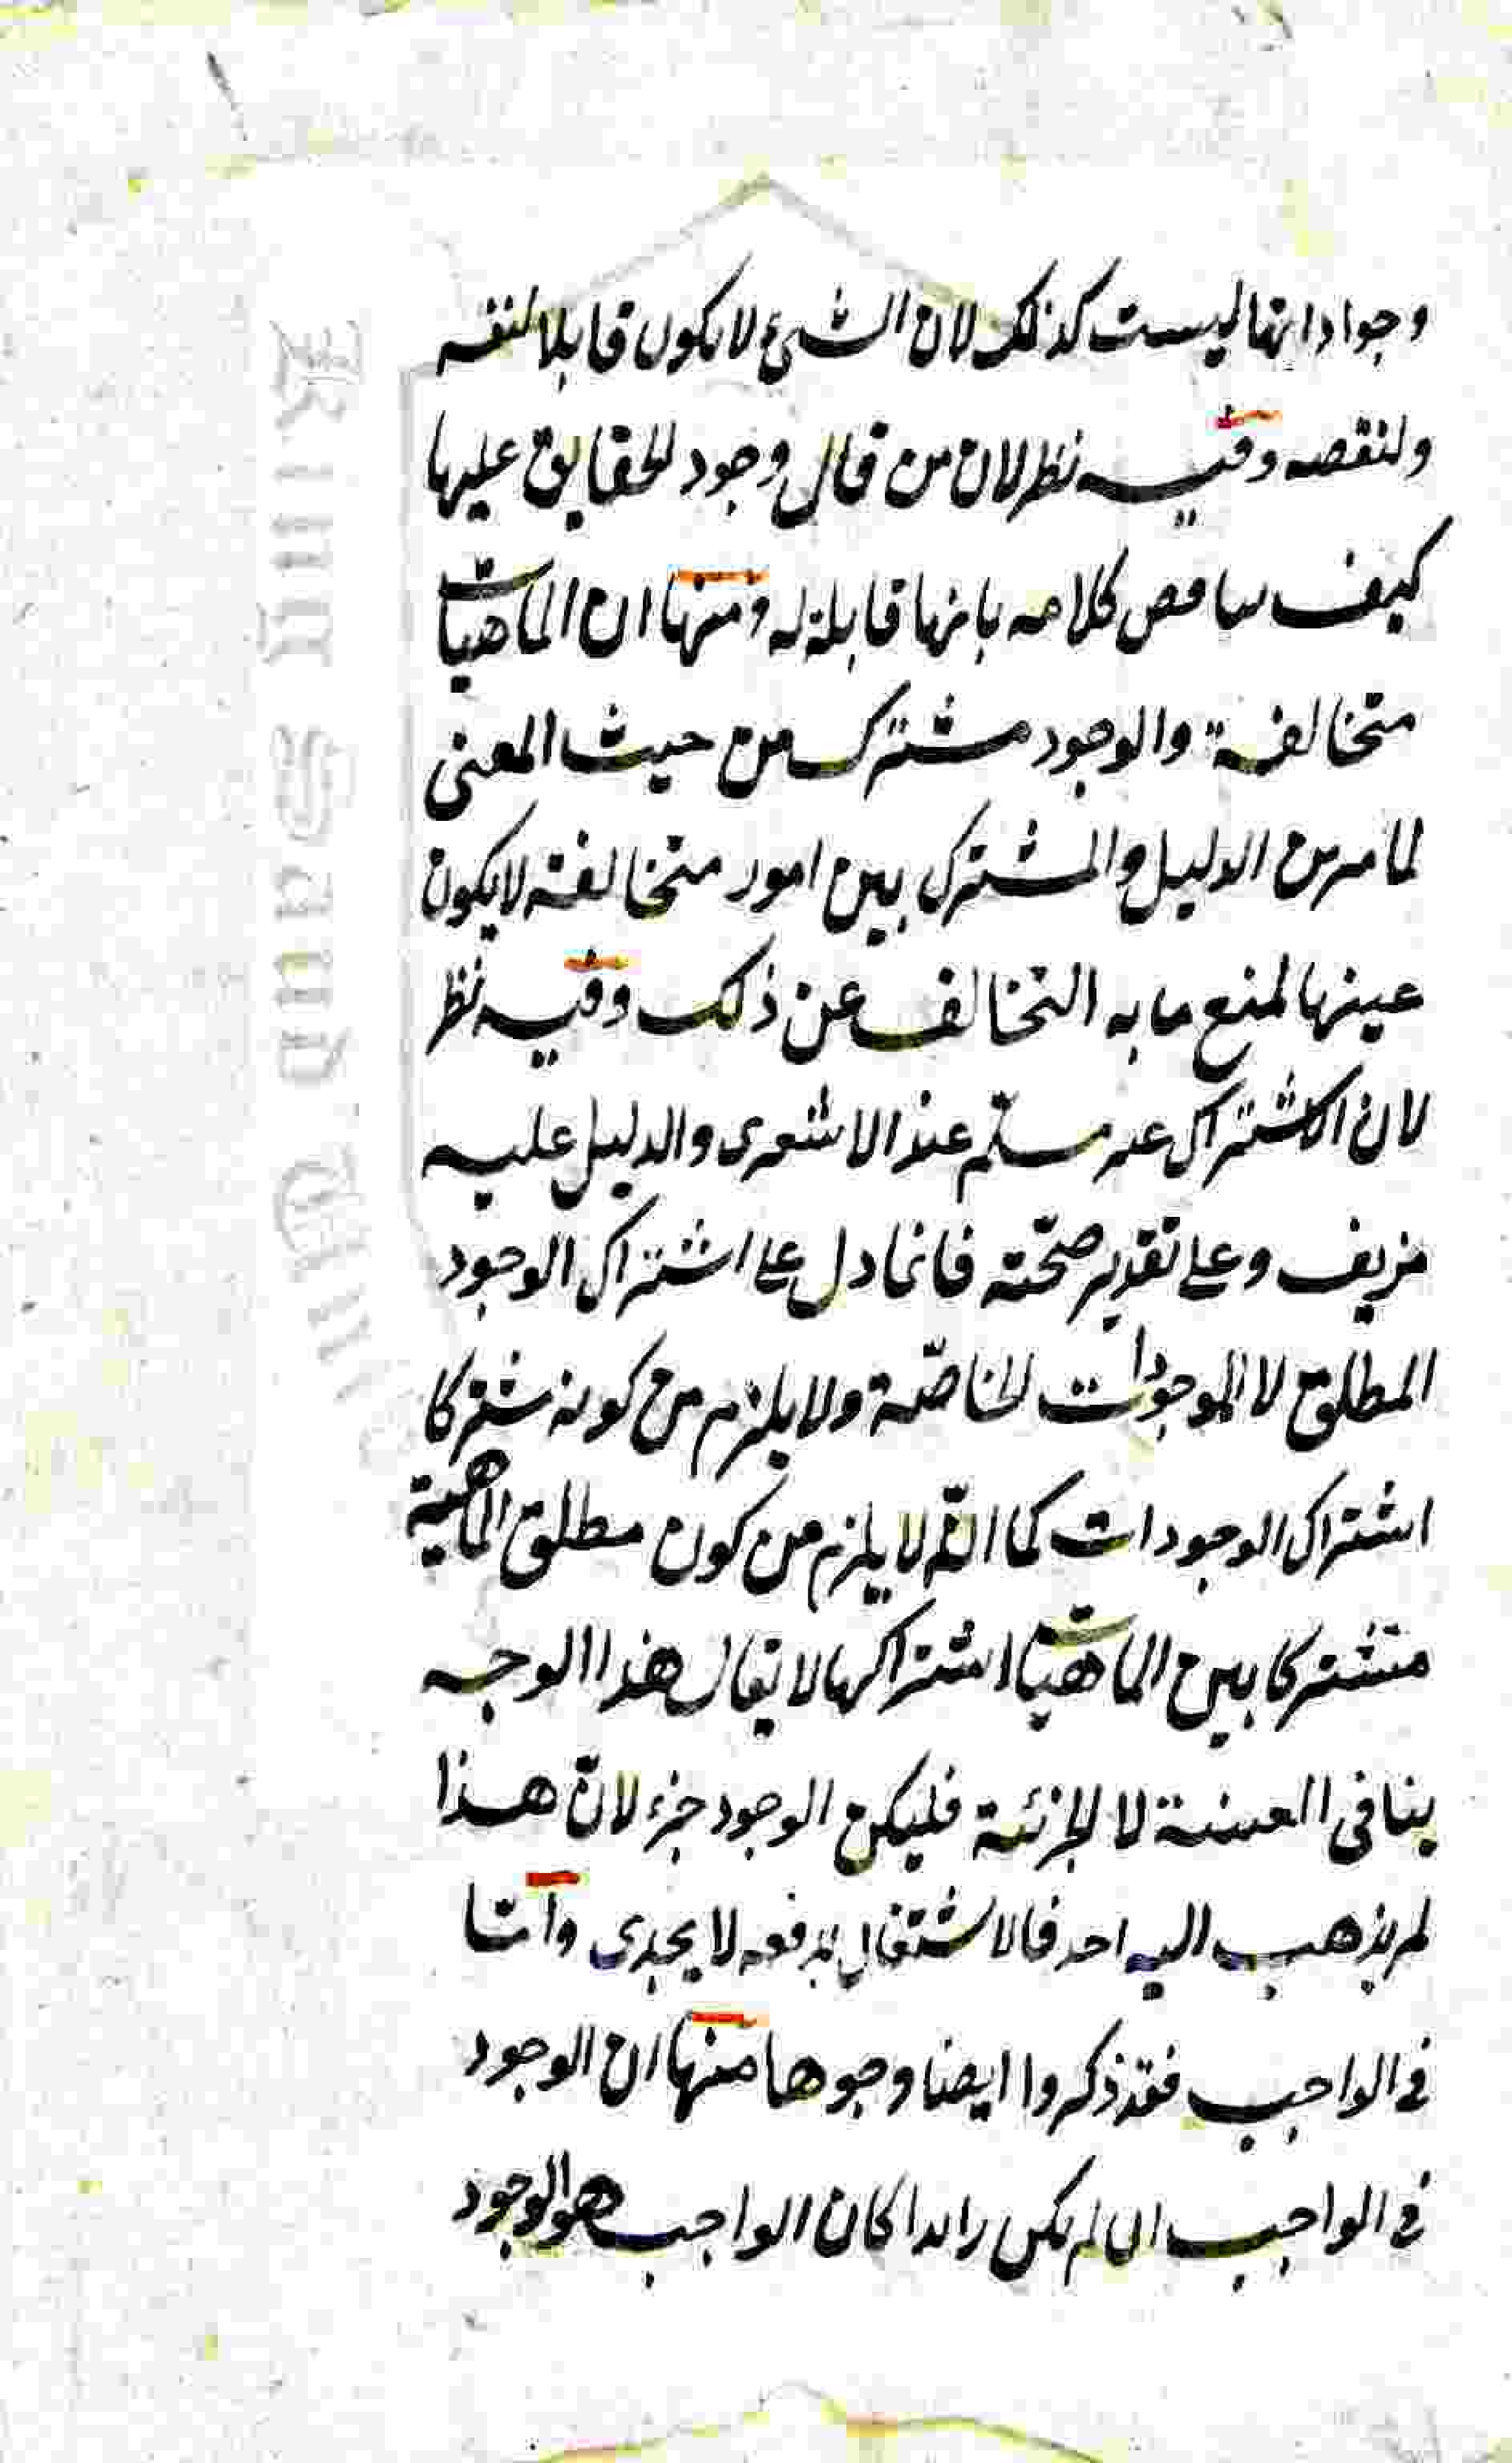 وجوداتها ليست كذلك لان الشئ لا يكون قابلا لنفسه
ولنقيضه وفيه نظر لان من قال وجود الحقايق عليها
كيف يناقض كلامه بانها قابلة له ومنها ان الماهيات
متخالفة والوجود مشترك من حيث المعنى
لما مر من الدليل والمشترك بين امور متخالفة لا يكون
عينها لمنع ما به التخالف عن ذلك وفيه نظر
لان الاشتراك غير مسلّم عند الاشعرى والدليل عليه
مزيف وعلى تقدير صحّته فانما دل على اشتراك الوجود
المطلق لا الموجودات الخاصّة ولا يلزم من كونه مشتركا
اشتراك الوجودات كما انّه لا يلزم من كون مطلق الماهية
مشتركا بين الماهيات اشتراكها لا يقال هذا الوجه
ينافى العينية لا الجزئية فليكن الوجود جزء لانّ هذا
لم يذهب اليه احد فالاشتغال بدفعه لا يجدى وامّا
فى الواجب فقد ذكروا ايضا وجوها منها ان الوجود
فى الواجب ان لم يكن زايدا كان الواجب هو الوجود
King Saud Univ